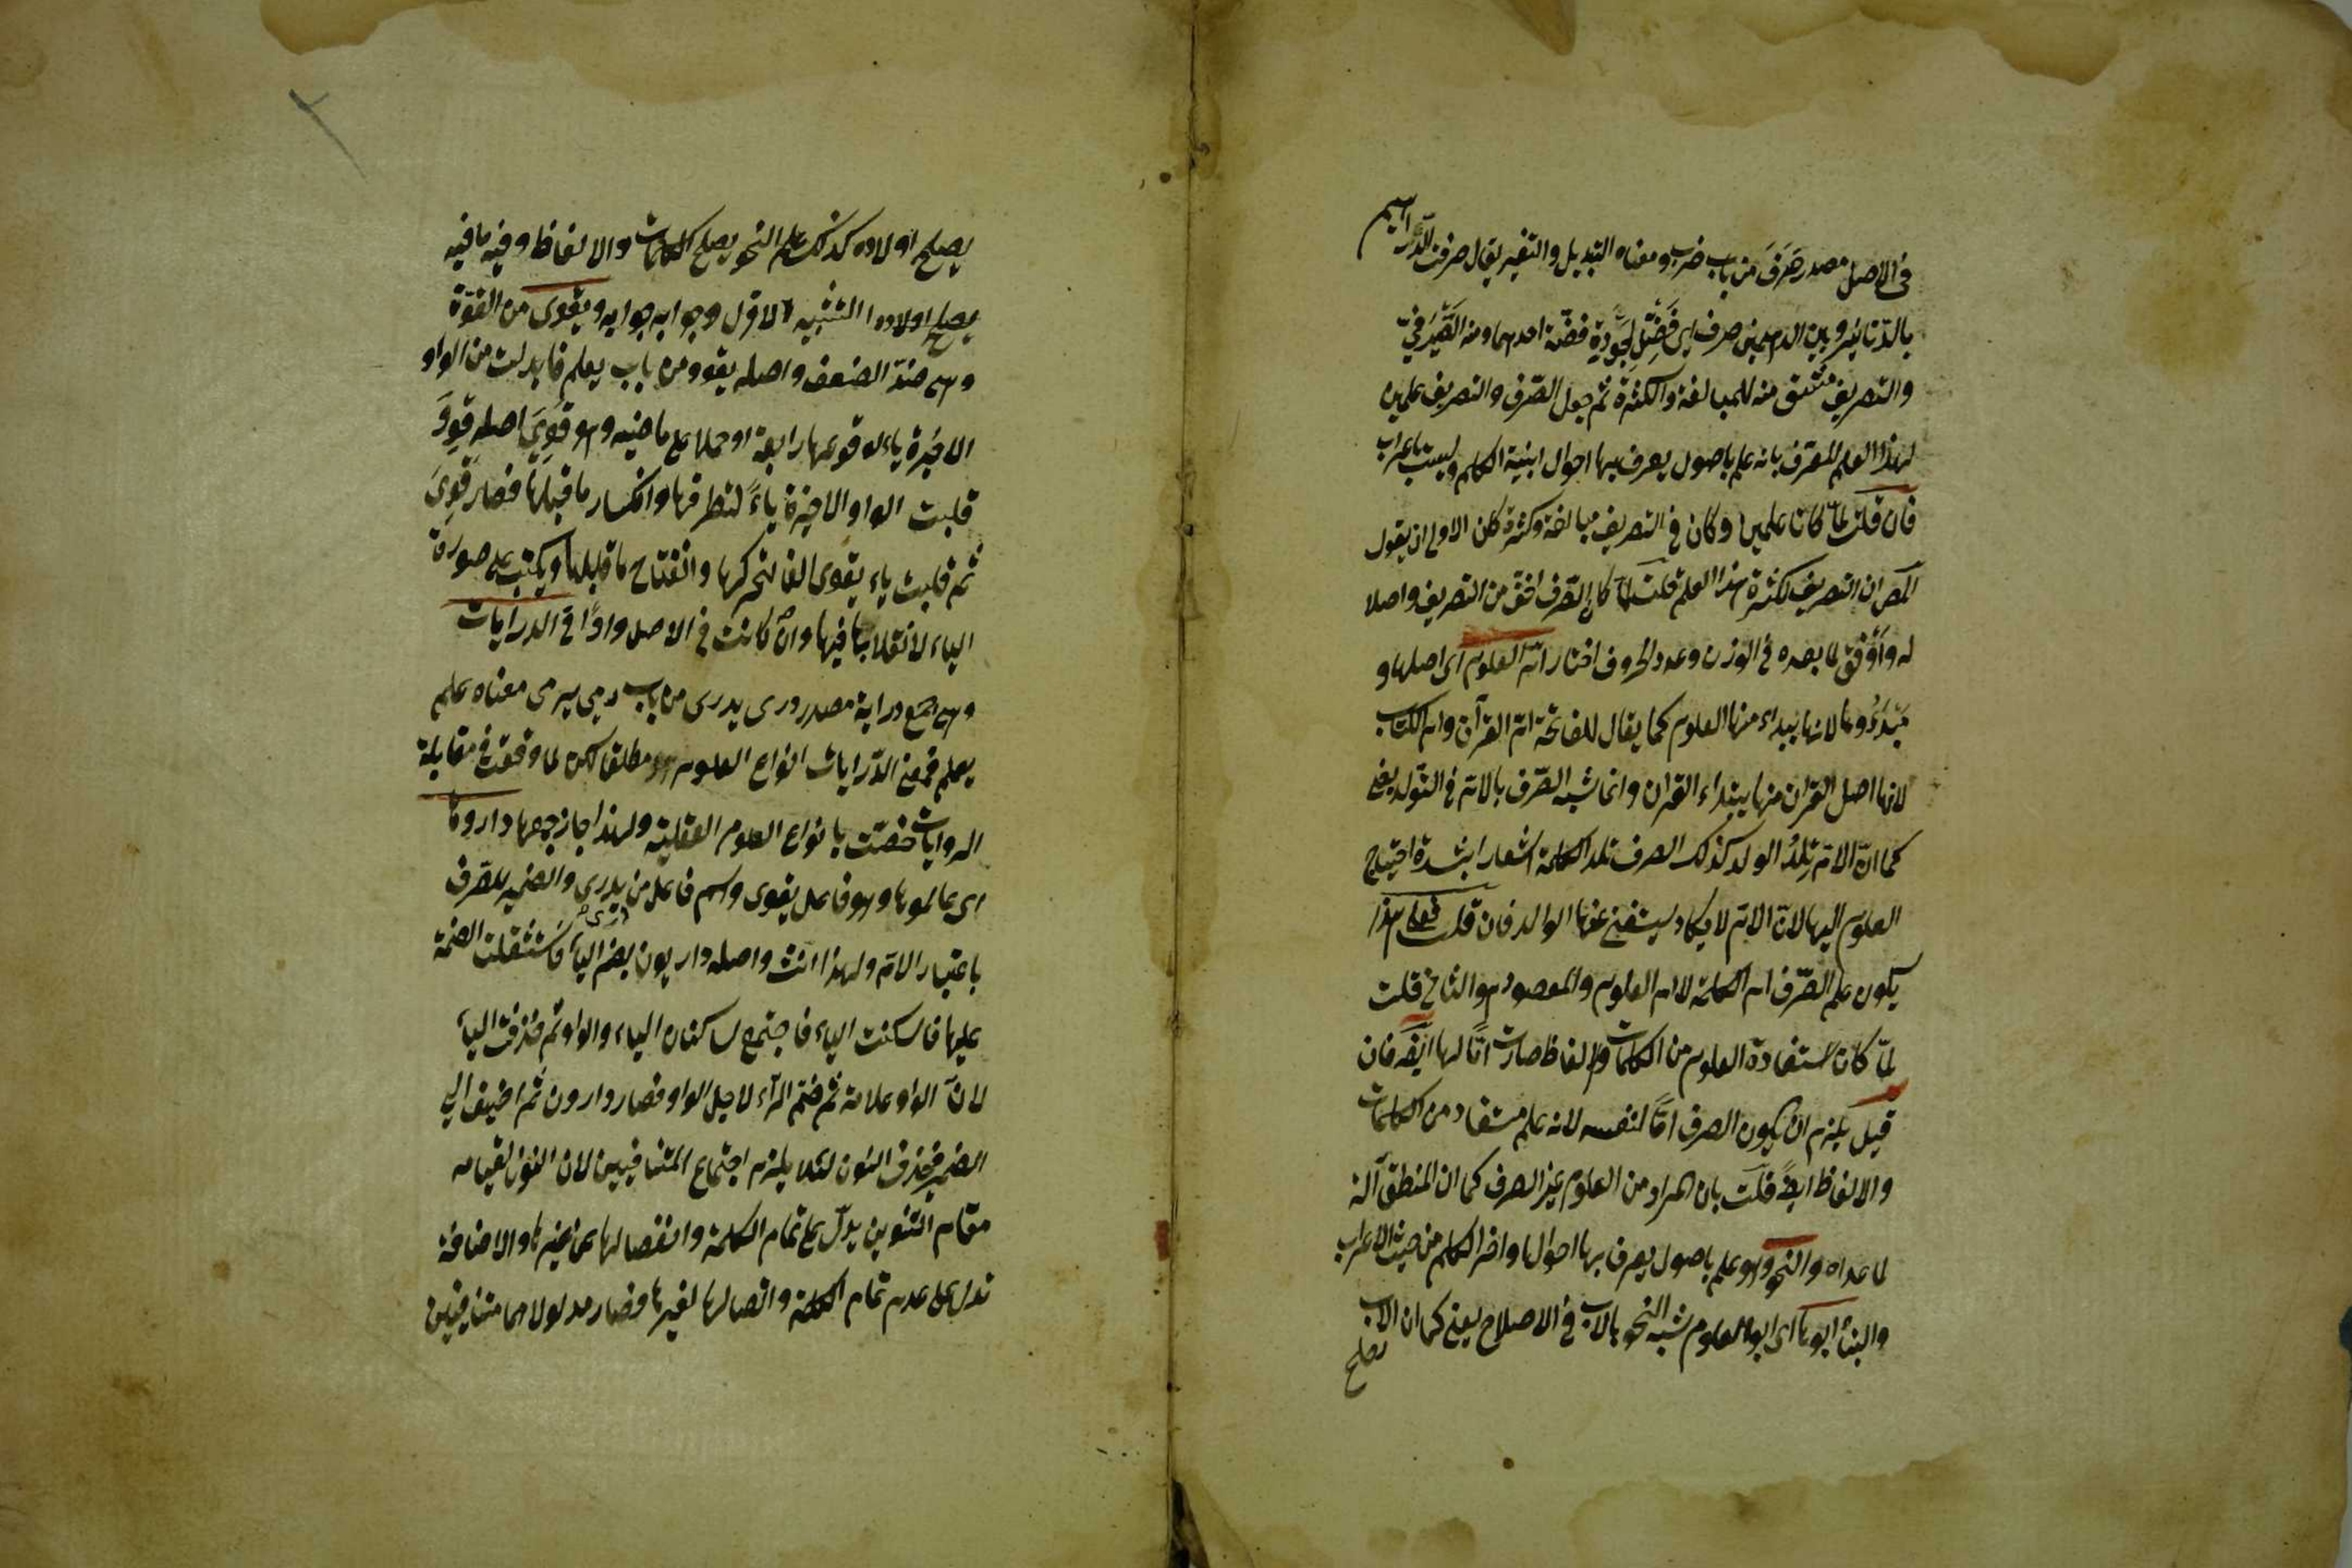 في الاصل مصدر صَرَفَ من باب ضرب ومعناه التبديل والتغيير يقال صرفت الدراهيم
بالدنانير وبين الدرهمين صرف اى فَضْل لجودة فضة احدهما ومنه الصَّيْرَفيّ
والتصريف مشتق منه للمبالغة والكثرة ثم جعل الصّرف والتصريف علمين
لهذا العلم المعرّف بانه علم باصول يعرف بها احوال ابنية الكلم وليست باعراب
فان قلت لمّا كانا علمين وكان في التصريف مبالغة وكثرة كان الاولى ان يقول
المص ان التصريف لكثرة هذا العلم قلت لمّا كان الصّرف اخفّ من التصريف واصلا
له وأَوْفق لما بعده في الوزن وعدد الحروف اختار امّ العلوم اى اصلها و
مَبْدَؤُها لانها يبتداء منها العلوم كما يقال للفاتحة امّ القرآن وام الكتاب
لانها اصل القران منها يبتداء القران وانما شبه الصّرف بالامّ في التّولد يعنى
كما انّ الامّ تَلِدُ الولد كذلك الصرف تلد الكلمة اشعارا بشدة احتياج
العلوم اليها لانّ الامّ لا يكاد يستغنى عنها الوالد فان قلت فعلى هذا
يكون علم الصّرف ام الكلمة لا ام العلوم والمقصود هو الثانى قلت
لمّا كان استفادة العلوم من الكلمات والالفاظ صارت امّا لها ايضا فان
قيل يلزم ان يكون الصرف امّا لنفسه لانه علم مستفاد من الكلمات
والالفاظ ايضا قلت بان المراد من العلوم غير الصرف كما ان المنطق آلة
لما عداه والنحو وهو علم باصول يعرف بها احوال اواخر الكلم من حيث الاعراب
والبناء ابوها اى ابو العلوم شبه النحو بالاب في الاصلاح يعنى كما ان الاب
يصلح
يصلح اولاده كذلك علم النحو يصلح الكلمات والالفاظ وفيه ما فيه
يصلح اولاده التشبيه الاول وجوابه جوابه ويقوى من القوّة
وهى ضدّ الضعف واصله يقوو من باب يعلم فابدلت من الواو
الاخيرة ياء لوقوعها رابعة او حملا على ماضيه وهو قَوِيَ اصله قَوِوَ
قلبت الواو الاخيرة ياءً لتطرفها وانكسار ما قبلها فصار قَوِيَ
ثم قلبت ياء يقوى الفا لتحركها وانفتاح ما قبلها ويكتب على صورة
الياء لانقلابها فيها وان كانت في الاصل واوًا في الدرايات
وهى جمع دراية مصدر درى يدرى من باب رمى يرمى معناه علم
يعلم فمعنى الدّرايات انواع العلوم مطلقا لكن لما وقعت في مقابلة
الروايات خصّت بانواع العلوم العقلية ولهذا جاز جمعها داروها
اى عالموها وهو فاعل يقوى واسم فاعل من يدرى والضمير للصّرف
باعتبار الامّ ولهذا انث واصله داريون بضم الياء فاستثقلت الضمة
عليها فاسكنت الياء فاجتمع ساكنان الياء والواو ثم حذفت الياء
لانّ الواو علامة ثم ضمّ الرّاء لاجل الواو فصار دارون ثم اضيف الى
الضمير فحذف النون لئلا يلزم اجتماع المتنافيين لان النون لقيامه
مقام التنوين يدلّ على تمام الكلمة وانفصالها عن غيرها والاضافة
تدل على عدم تمام الكلمة واتصالها لغيرها فصار مدلولاهما متنافيين